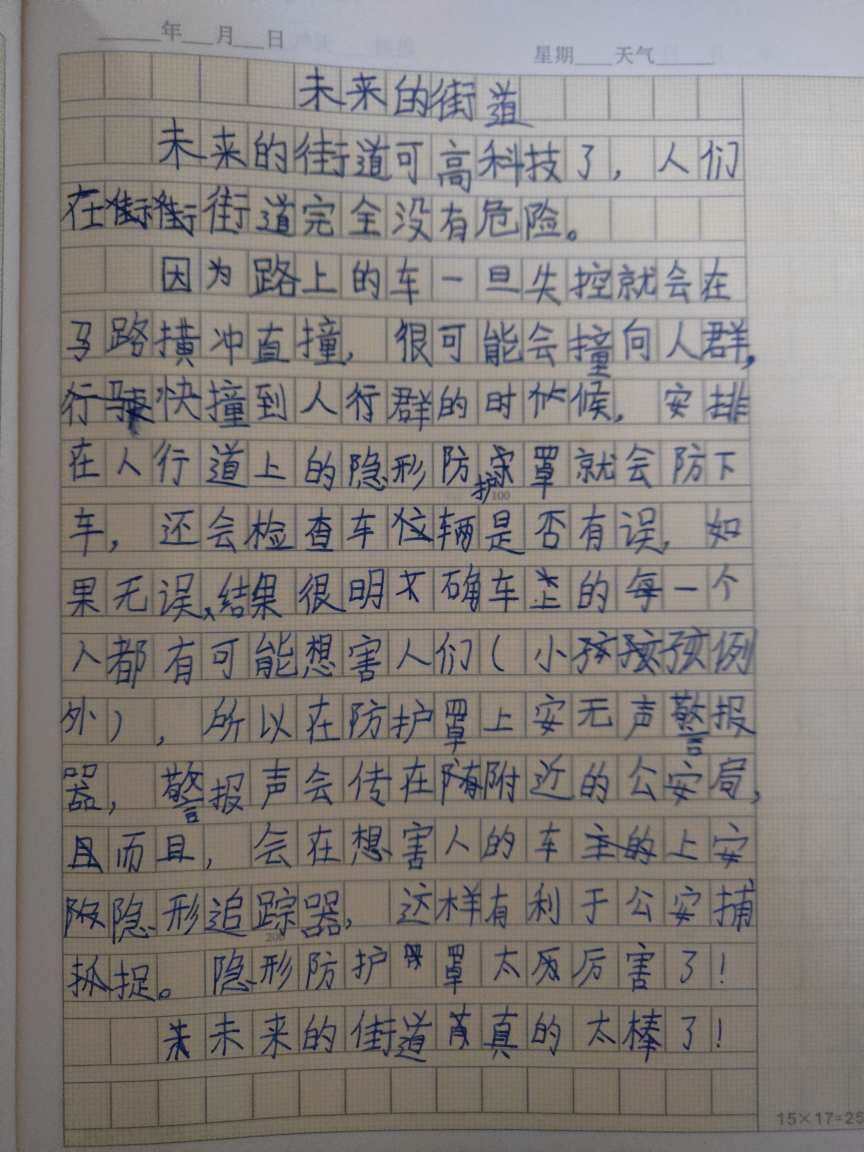 年 月 日
星期 天气
未来的街道
未来的街道可高科技了，人们
在街道完全没有危险。
因为路上的车一旦失控就会在
马路横冲直撞，很可能会撞向人群，
快撞到人行群的时候，安排
在人行道上的隐形防护罩就会防下
车，还会检查车辆是否有误，如
果无误、结果很明确车上的每一个
人都有可能想害人们（小孩例
外），所以在防护罩上安无声警报
器，警报声会传在附近的公安局，
而且，会在想害人的车上安
隐形追踪器，这样有利于公安捕
捉。隐形防护罩太厉害了！
未来的街道真的太棒了！
100
200